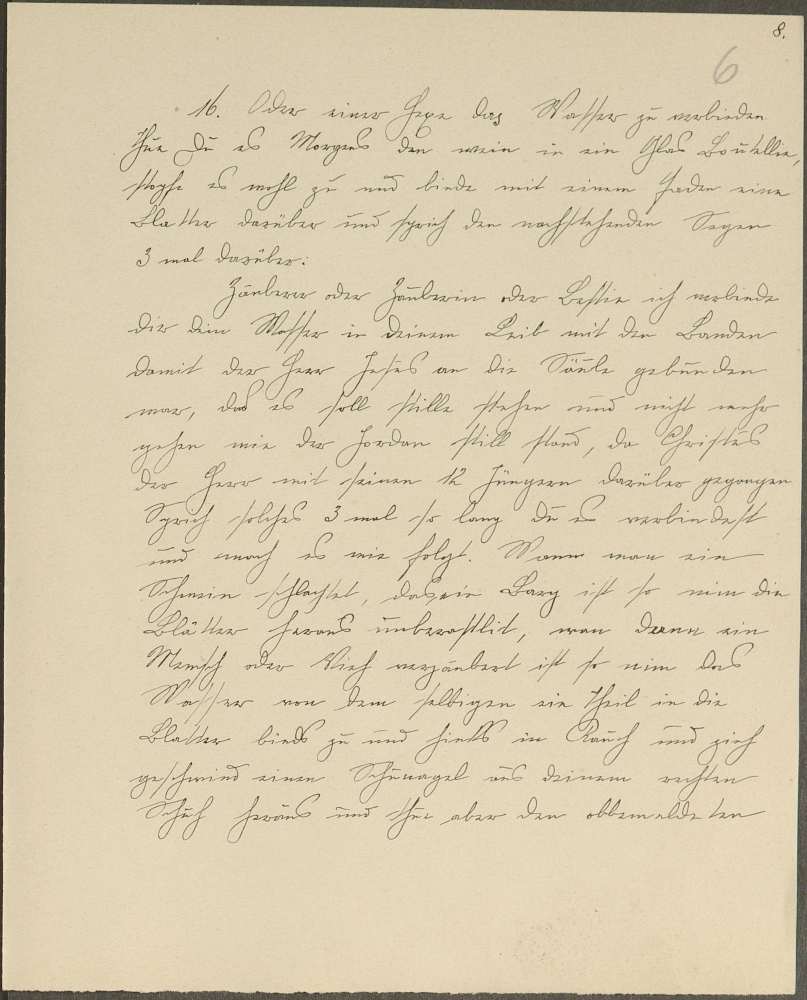 8.
6
16. Oder einer Hexe das Wasser zu verbieden
Thue Du es Morgens den wein in ein Glas Boutellie,
stopfe es wohl zu und binde mit einem Faden eine
Blatter darüber und sprich den nachstehenden Segen
3 mal darüber:
Zäuberer oder Zäuberin oder Bestie ich verbinde
dir dein Wasser in deinem Leib mit den Banden
damit der Herr Jesus an die Säule gebunden
war, das es soll stille stehen und nicht mehr
gehen wie der Jordan still stand, da Christus
der Herr mit seinen 12 Jüngern darüber gegangen
Sprich solches 3 mal so lang du es verbindest
und mach es wie folgt. Wann man ein
Schwein schlachtet, das ein Barg ist so nim die
Blätter heraus man dann ein
Mensch oder Vieh verzäubert ist so nim das
Wasser von dem selbigen ein Theil in die
Blatter binds zu und henks in Rauch und zieh
geschwind einen Schunagel aus deinem rechten
Schuh heraus und thue aber den obbemeldeten